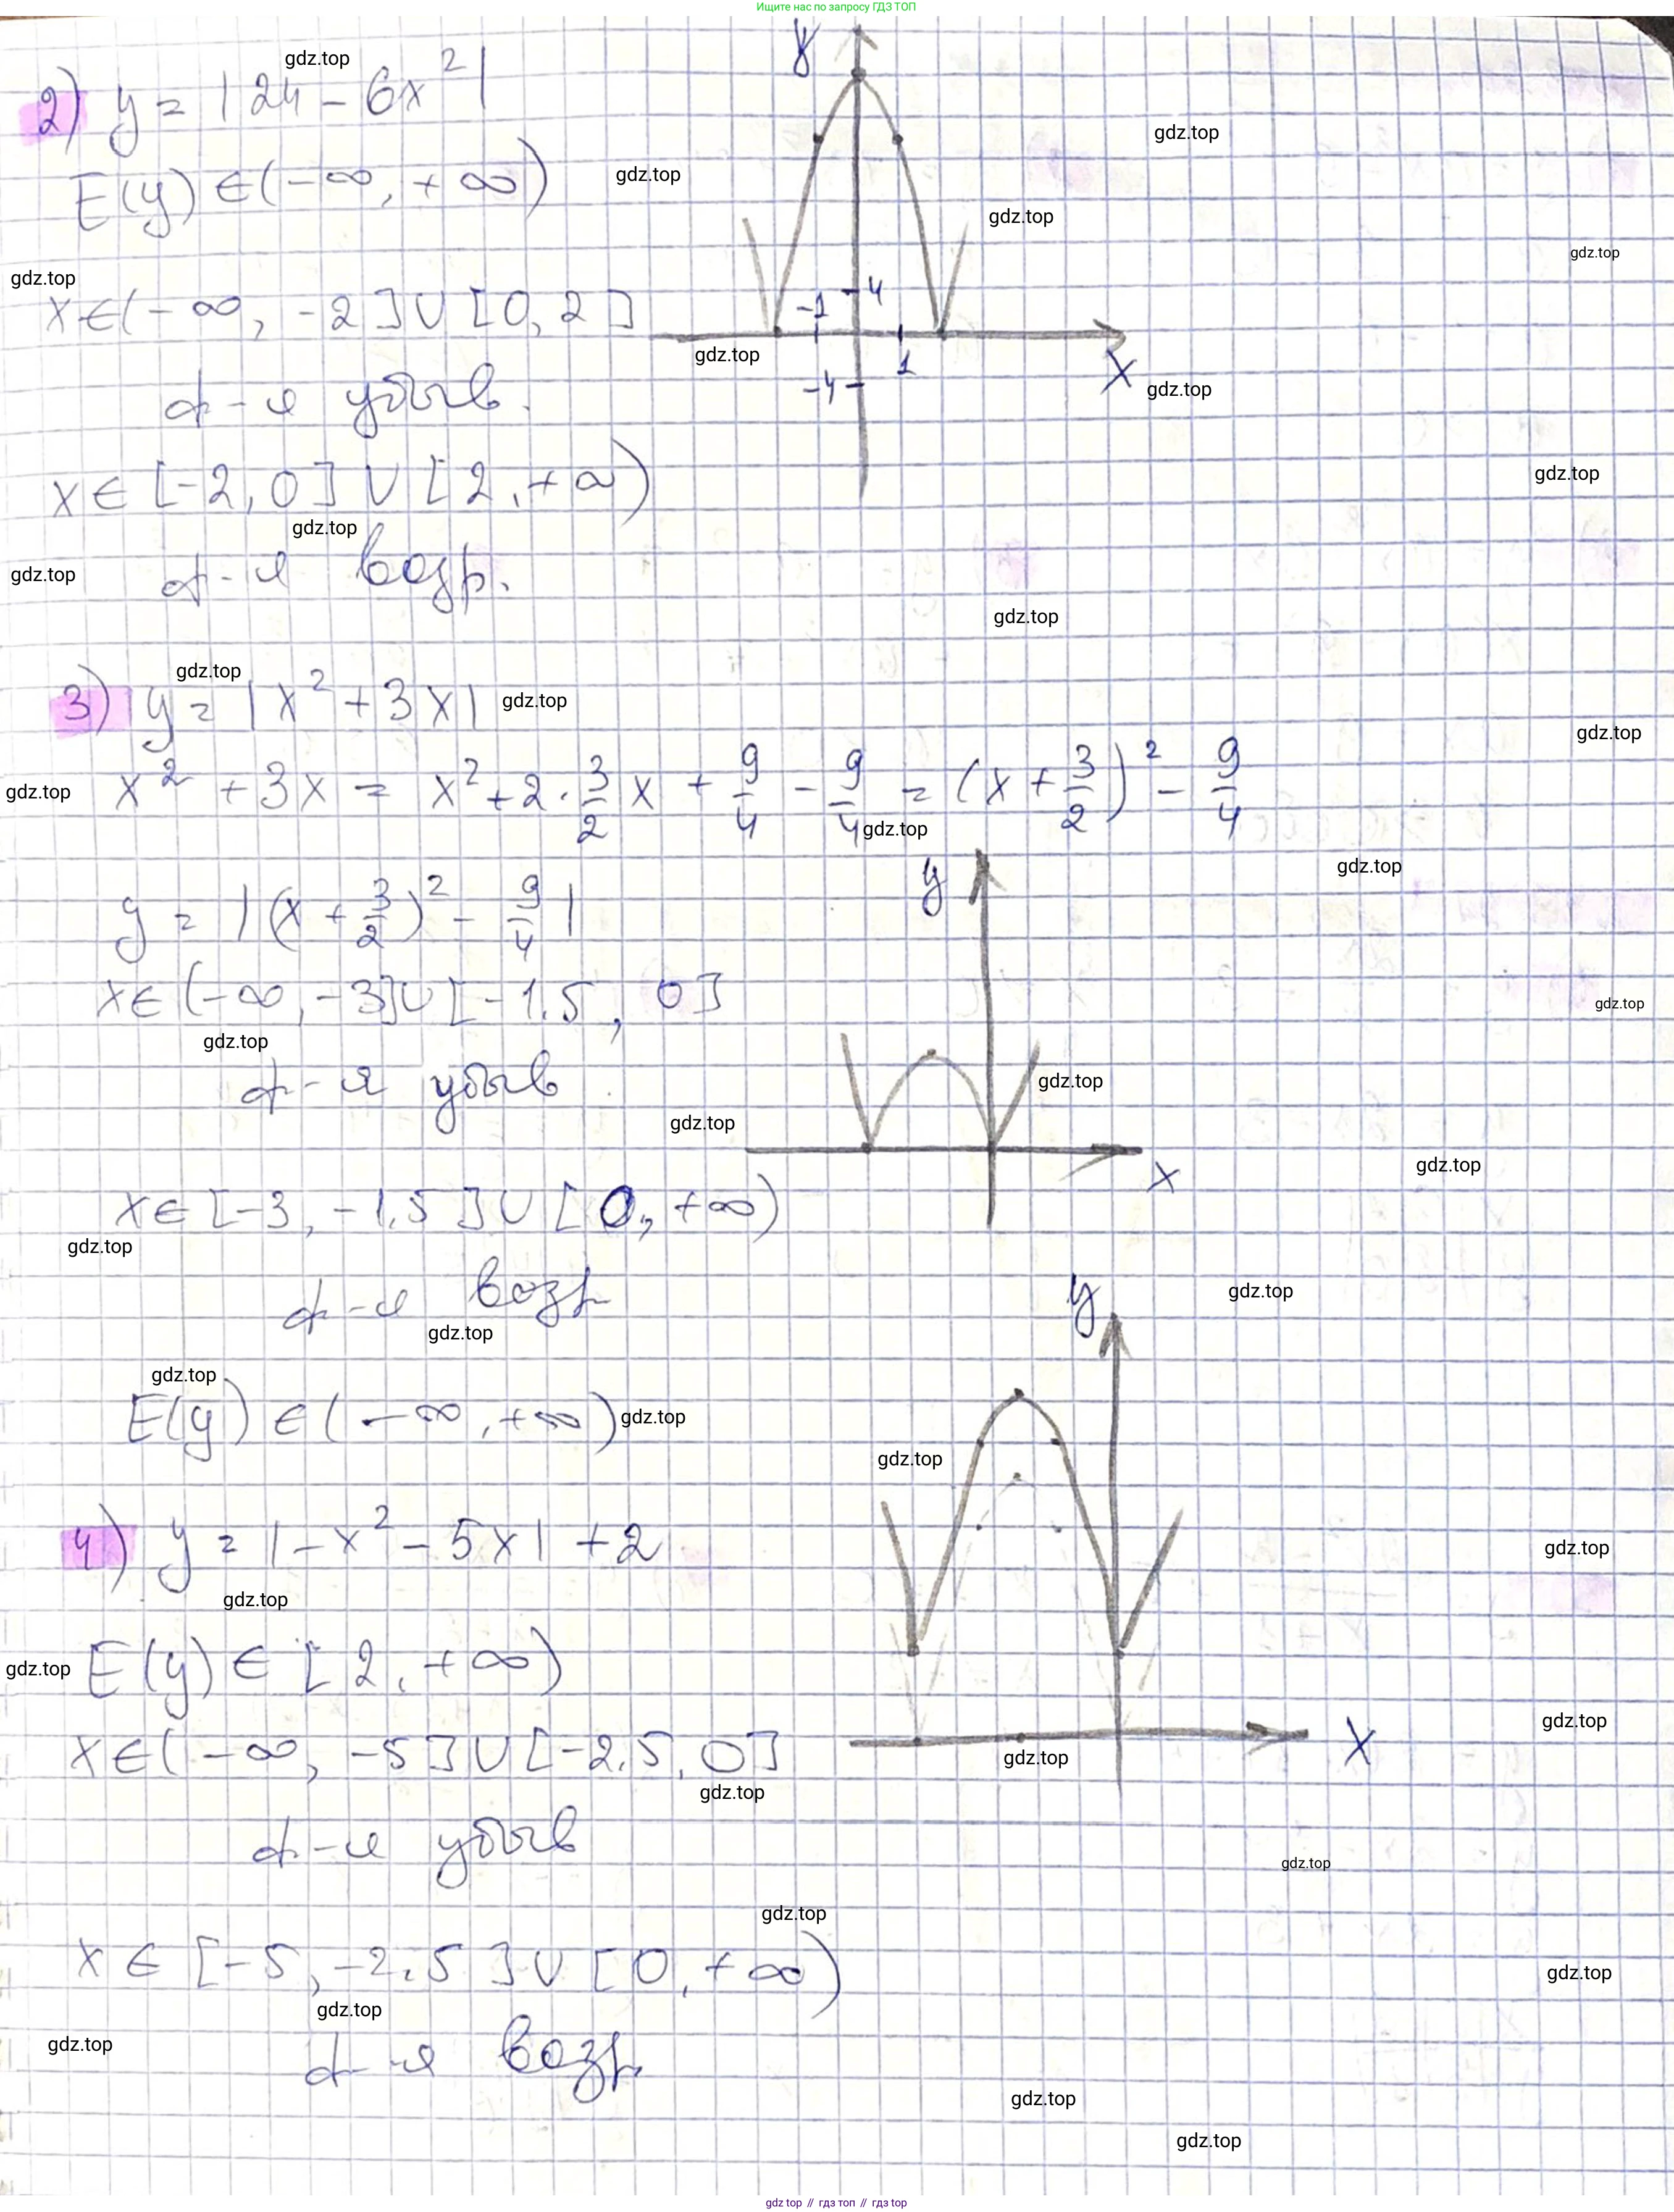 Ищите нас по запросу ГДЗ ТОП
2) y = |24 - 6x²|
E(y) ∈ (-∞, +∞)
x ∈ (-∞, -2] ∪ [0, 2]
ф-я убыв.
x ∈ [-2, 0] ∪ [2, +∞)
ф-я возр.
y
4
-1
1
-4
x
3) y = |x² + 3x|
x² + 3x = x² + 2 · 3/2 x + 9/4 - 9/4 = (x + 3/2)² - 9/4
y = |(x + 3/2)² - 9/4|
x ∈ (-∞, -3] ∪ [-1.5, 0]
ф-я убыв
x ∈ [-3, -1.5] ∪ [0, +∞)
ф-я возр
E(y) ∈ (-∞, +∞)
y
x
4) y = |-x² - 5x| + 2
E(y) ∈ [2, +∞)
x ∈ (-∞, -5] ∪ [-2.5, 0]
ф-я убыв
x ∈ [-5, -2.5] ∪ [0, +∞)
ф-я возр.
y
x
gdz.top
gdz top // гдз топ // гдз top